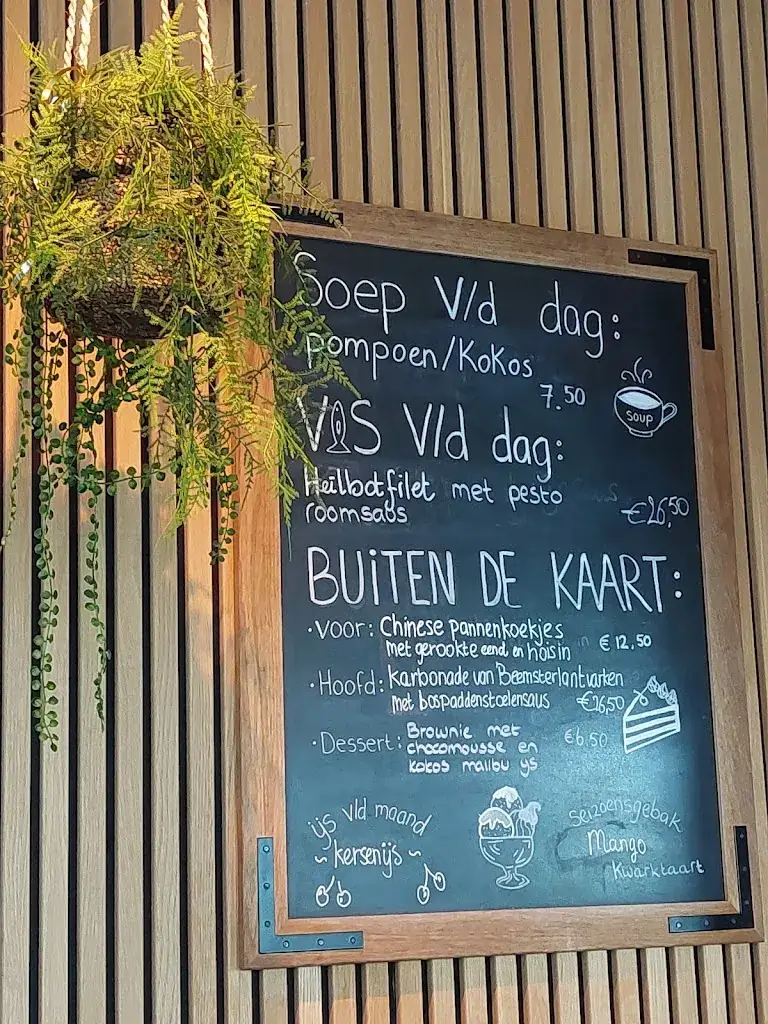 Soep V/d dag:
pompoen/Kokos
7.50
soup
VIS V/d dag:
Heilbotfilet met pesto
roomsaus
€26,50
BUiTEN DE KAART:
·Voor: Chinese pannenkoekjes
met gerookte eend en hoisin € 12,50
·Hoofd: Karbonade van Beemsterlantvarken
met bospaddenstoelensaus €26,50
·Dessert: Brownie met
chocomousse en
kokos malibu ys
€6.50
ijs v/d maand
~kersenijs~
Seizoensgebak
Mango
Kwarktaart